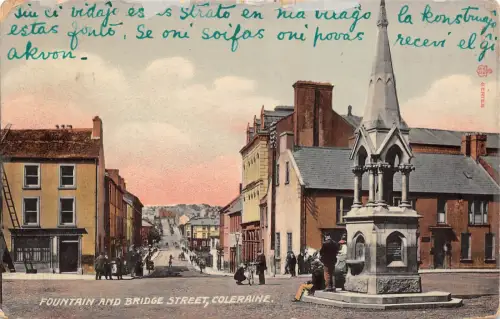 Jin ĉi vidaĵo es s strato en nia vilaĝo la konstruaĵo
estas fonto, Se oni soifas oni povas recevi el ĝi
akvon.
FOUNTAIN AND BRIDGE STREET, COLERAINE.